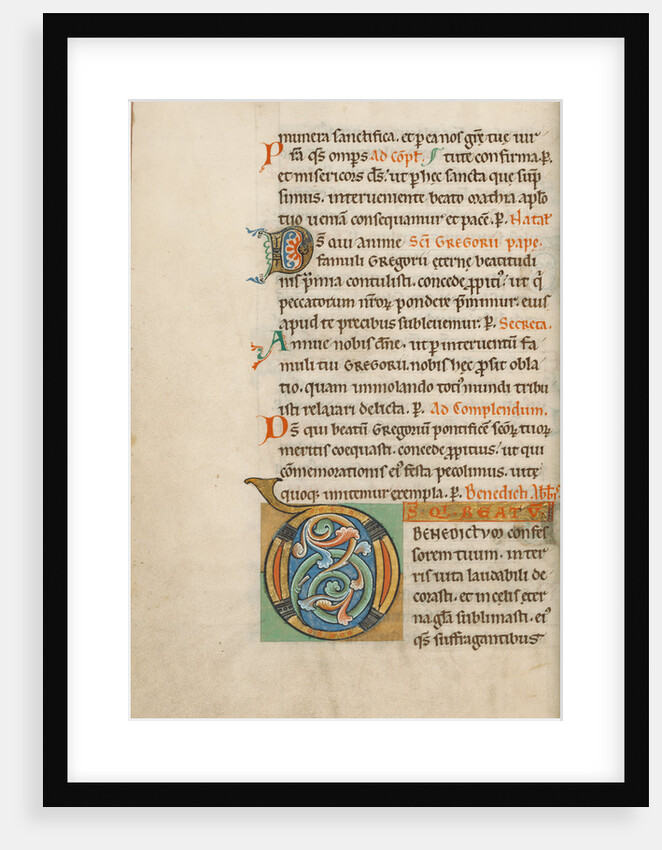 munera sanctifica. et p ea nos grȩ tuȩ uir
Psa. qs omps Ad cōpl. Tute confirma. P.
et misericors ds. ut p hȩc sancta que sūp
simus. interueniente beato mathia aplo
tuo ueniā consequamur et pacē. P. Natal
Ds qui anime Sci Gregorii pape.
famuli Gregorii ȩterne beatitudi
nis p̄mia contulisti. concede ꝓpiti9. ut q̄
peccatorum nr̄oꝝ pondere p̄mimur. eius
apud te precibus subleuemur. P. Secreta.
Annue nobis dn̄e. ut p interuentū fa
muli tui Gregorii. nobis hȩc ꝓsit obla
tio. quam immolando toti9 mundi tribu
isti relaxari delicta. P. Ad Complendum.
Ds qui beatū Gregoriū pontificē scoꝝ tuoꝝ
meritis coequasti. concede ꝓpitius. ut qui
cōmemorationis ei9 festa pecolimus. uitȩ
quoq; imitemur exempla. P. Benedicti Abbis
Ds QI BEATV
BENEDICTVM confes
sorem tuum. in ter
ris uita laudabili de
corasti. et in cȩlis ȩter
na gl̄a sublimasti. ei9
qs suffragantibus